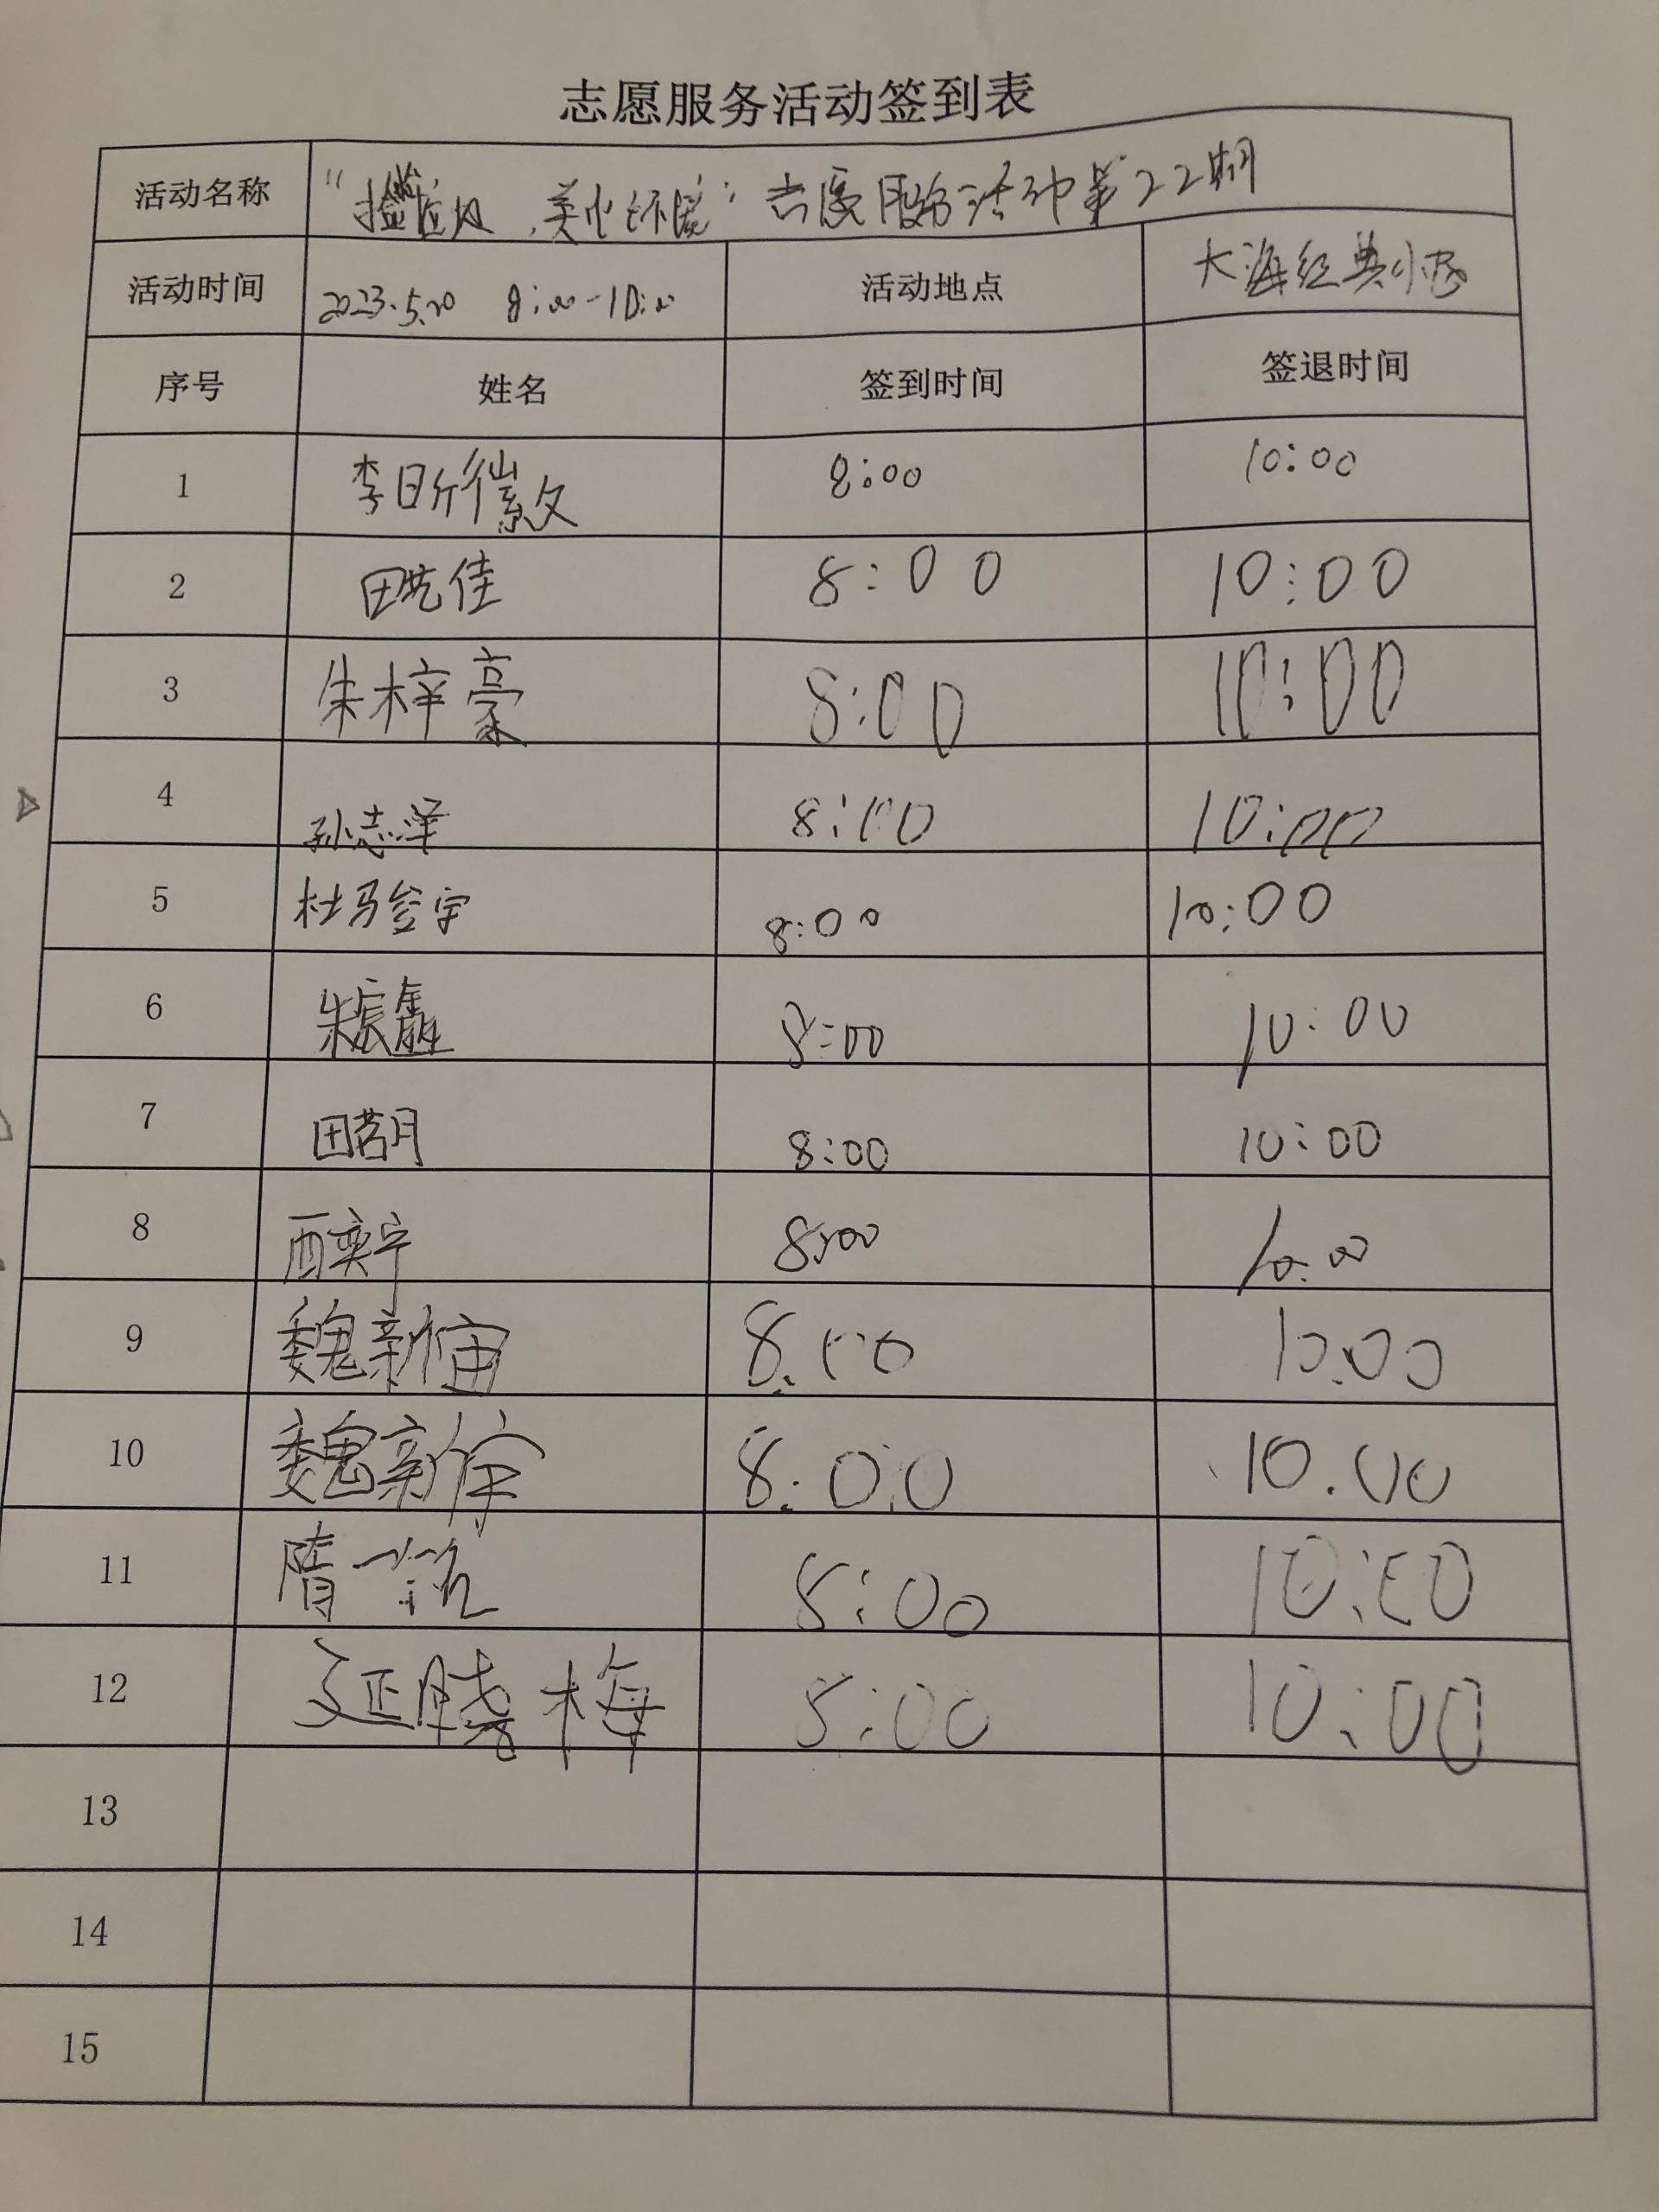 志愿服务活动签到表
活动名称 美化环境"志愿服务活动第22期
活动时间 2023.5.20 8:00-10:00 活动地点 大海经典小区
序号 姓名 签到时间 签退时间
1 李昕徽文 8:00 10:00
2 田艺佳 8:00 10:00
3 朱梓豪 8:00 10:00
4 孙志泽 8:00 10:00
5 杜 宇 8:00 10:00
6 朱宸鑫 8:00 10:00
7 田若月 8:00 10:00
8 西奕宁 8:00 10:00
9 魏新宙 8:00 10:00
10 魏新 8:00 10.00
11 隋一 8:00 10:00
12 延晓梅 8:00 10:00
13
14
15